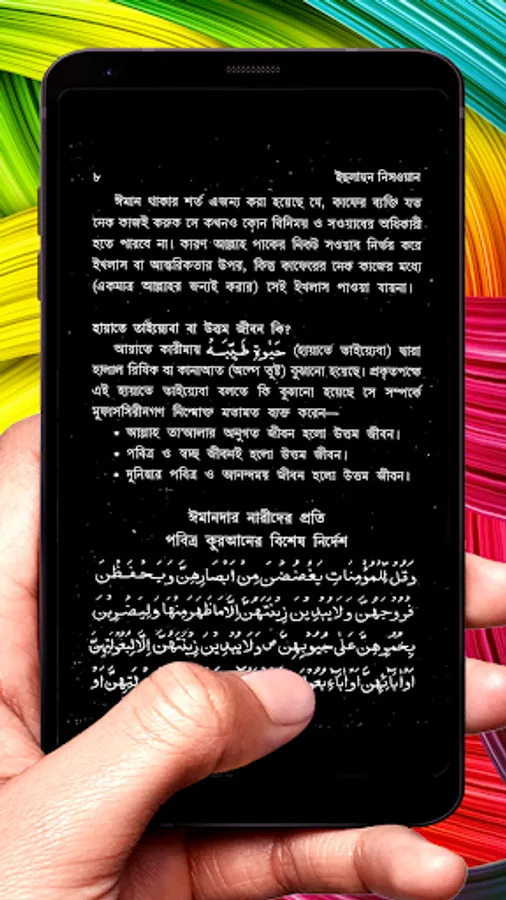 ৮ ইছলাহুন নিসওয়ান
ঈমান থাকার শর্ত এজন্য করা হয়েছে যে, কাফের ব্যক্তি যত
নেক কাজই করুক সে কখনও কোন বিনিময় ও সওয়াবের অধিকারী
হতে পারবে না। কারণ আল্লাহ পাকের নিকট সওয়াব নির্ভর করে
ইখলাস বা আন্তরিকতার উপর, কিন্তু কাফেরের নেক কাজের মধ্যে
(একমাত্র আল্লাহর জন্যই করার) সেই ইখলাস পাওয়া যায়না।
হায়াতে তাইয়্যেবা বা উত্তম জীবন কি?
আয়াতে কারীমায় حَيٰوةً طَيِّبَةً (হায়াতে তাইয়্যেবা) দ্বারা
হালাল রিযিক বা কানাআত (অল্পে তুষ্ট) বুঝানো হয়েছে। প্রকৃতপক্ষে
এই হায়াতে তাইয়্যেবা বলতে কি বুঝানো হয়েছে সে সম্পর্কে
মুফাসসিরীনগণ নিম্মোক্ত মতামত ব্যক্ত করেন—
• আল্লাহ তা'আলার অনুগত জীবন হলো উত্তম জীবন।
• পবিত্র ও স্বচ্ছ জীবনই হলো উত্তম জীবন।
• দুনিয়ার পবিত্র ও আনন্দময় জীবন হলো উত্তম জীবন।
ঈমানদার নারীদের প্রতি
পবিত্র কুরআনের বিশেষ নির্দেশ
وَقُلْ لِّلْمُؤْمِنَاتِ يَغْضُضْنَ مِنْ اَبْصَارِهِنَّ وَيَحْفَظْنَ
فُرُوْجَهُنَّ وَلَايُبْدِيْنَ زِيْنَتَهُنَّ اِلَّا مَاظَهَرَ مِنْهَا وَلْيَضْرِبْنَ
بِخُمُرِهِنَّ عَلٰى جُيُوْبِهِنَّ ص وَلَا يُبْدِيْنَ زِيْنَتَهُنَّ اِلَّا لِبُعُوْلَتِهِنَّ
اَوْ اٰبَائِهِنَّ اَوْ اٰبَاءِ اَوْ